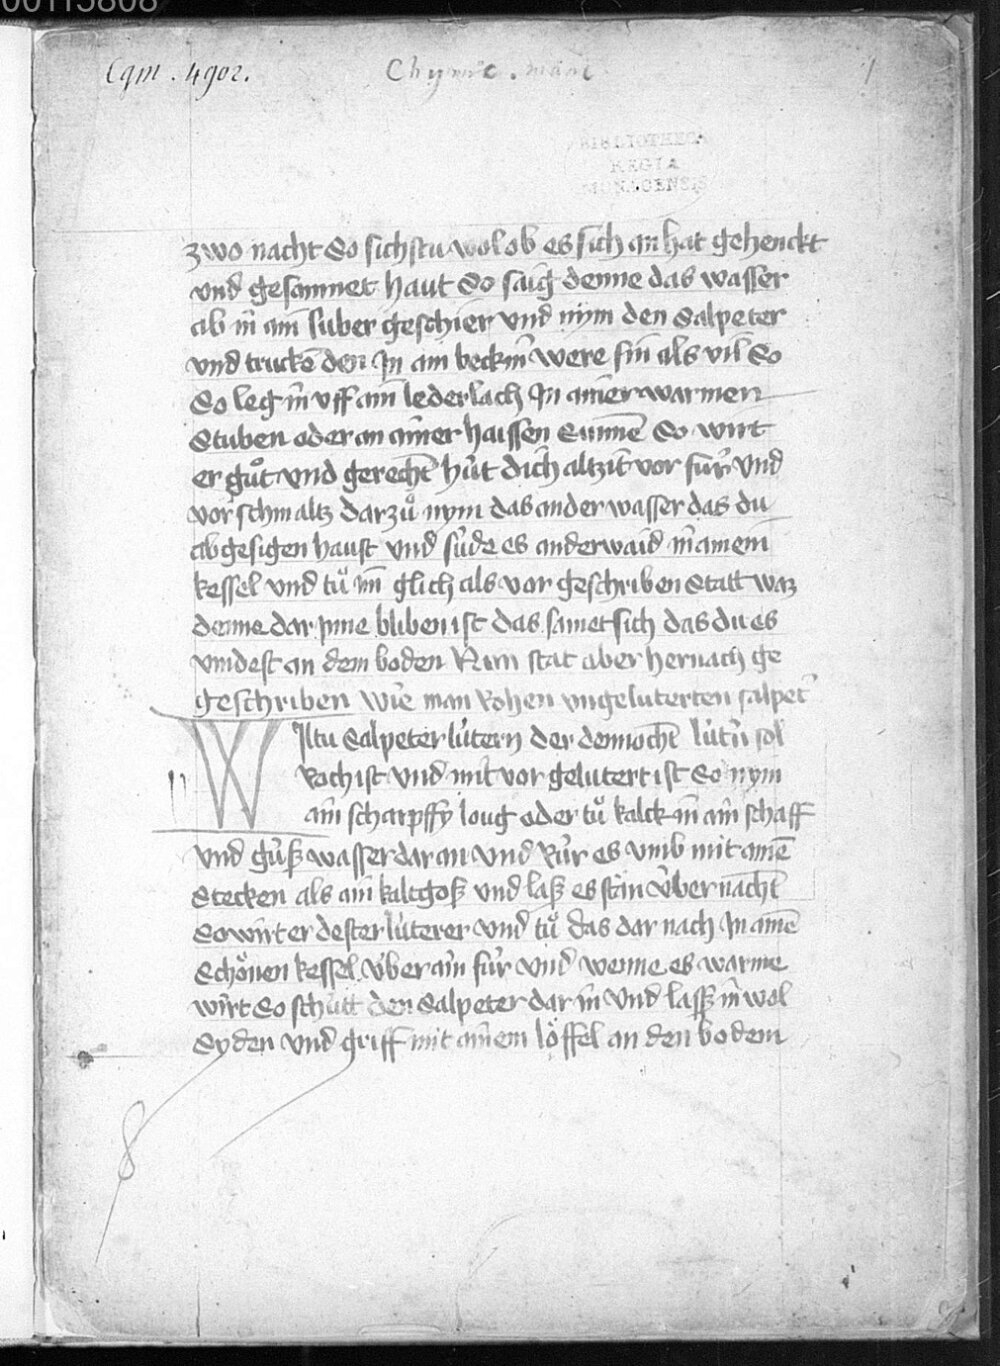 00115808
Cgm . 4902.
1
BIBLIOTHECA
REGIA
MONACENSIS
zwo nacht So sichstu wol ob es sich an hat gehenckt
vnd gesamnet haut So saig denne das wasser
ab in ain suber geschier vnd nym den Salpeter
vnd truckē den In ain beckin were sin als vil So
So leg in vff ain lederlach In ainer warmen
Stuben oder an ainer haissen Sunnē So wirt
er gůt vnd gerecht hüt dich altzit vor für vnd
vor schmaltz darzů nym das ander wasser das du
abgesigen haust vnd süde es anderwaid in ainem
kessel vnd tů im glich als vor geschriben Statt waz
denne dar Inne bliben ist das samet sich das du es
vindest an dem boden Nun stat aber hernach ge
geschriben wie man Rohen vngeluterten salpet᷑
WIltu Salpeter lütern der dennocht lütn̄ sol
Roch ist vnd nit vor gelutert ist So nym
ain scharpffy loug oder tů kalck in ain schaff
vnd güß wasser dar an vnd Rür es vmb mit ainē
Stecken als ain kaltgoß vnd laß es stān über nacht
So wirt er dester lüterer vnd tů das dar nach In ainē
Schönen kessel über ain für vnd wenne es warme
wirt So schütt den Salpeter dar in vnd lasß in wol
Syden vnd griff mit ainem löffel an den bodem